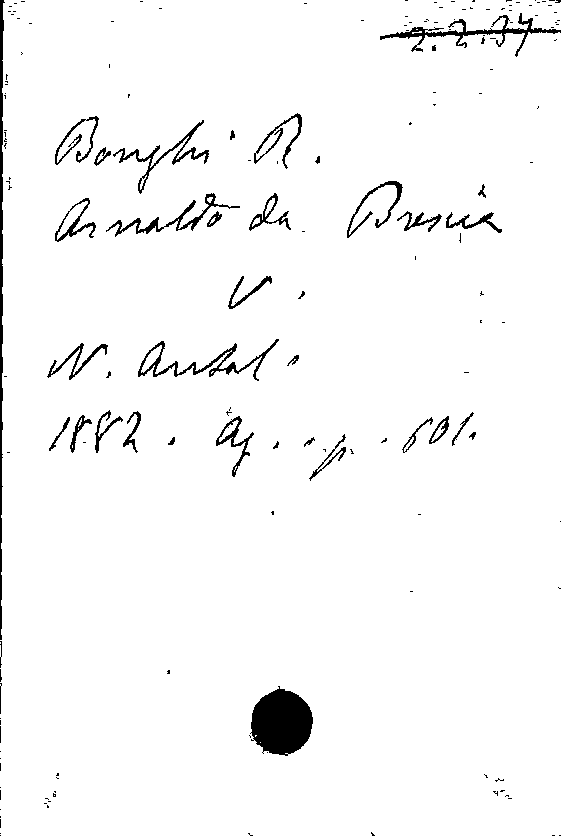 2.2.37
Bonghi R.
Arnaldo da Brescia
V.
N. Antol.
1882. Ag. p. 601.